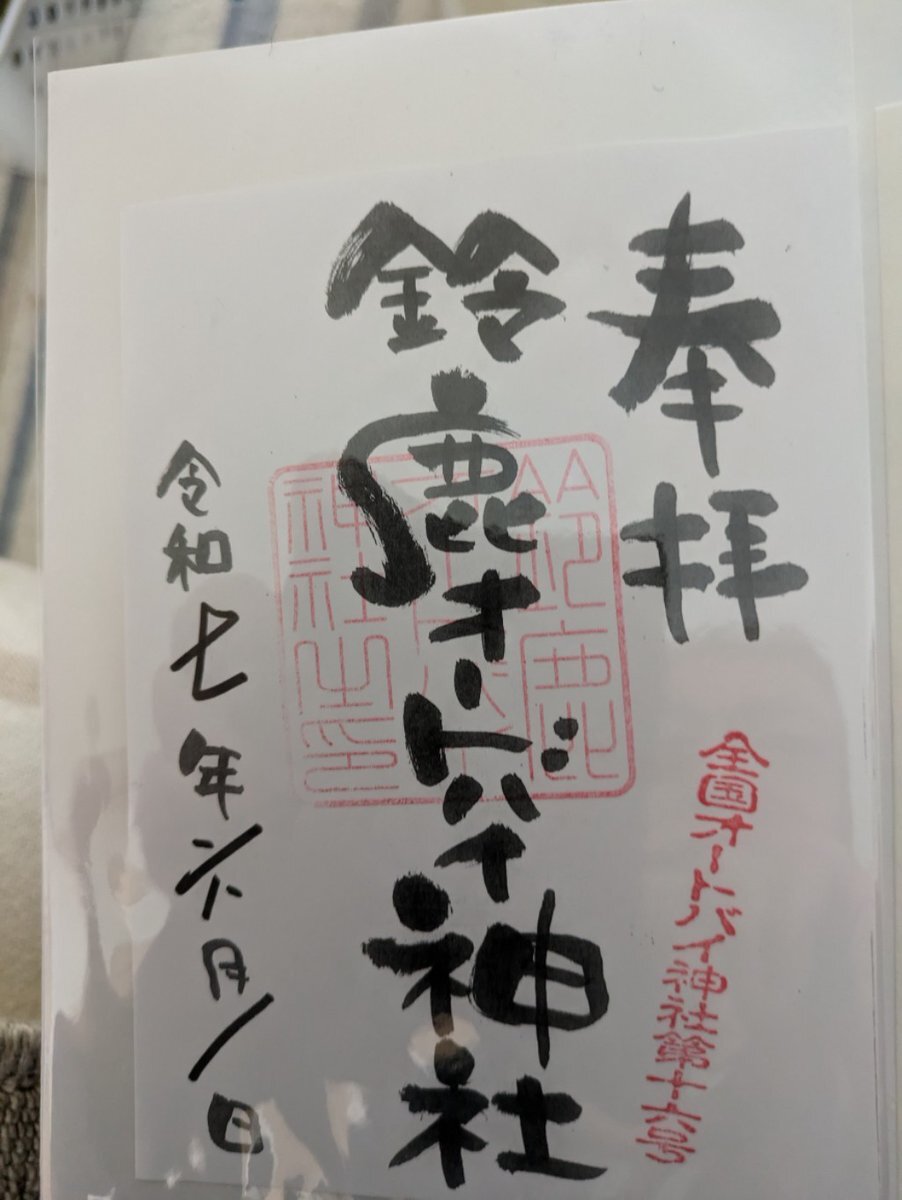 奉拝
全国オートバイ神社第十六号
鈴鹿オートバイ神社
鈴鹿
神社之印
令和七年六月一日